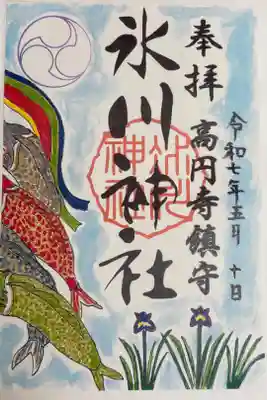 奉拝
高円寺鎮守
令和七年五月十日
氷川神社
氷川神社